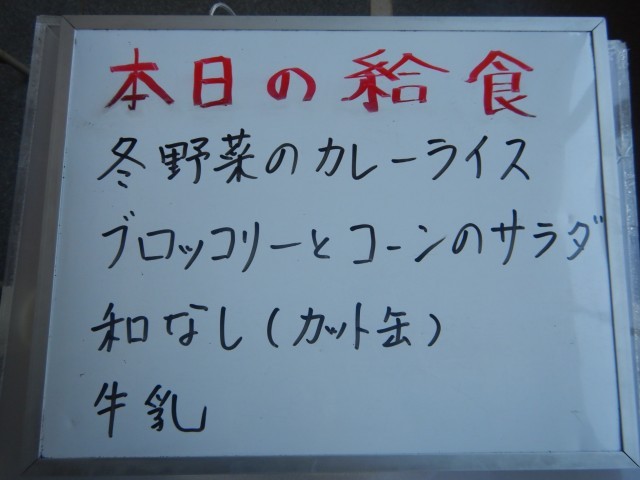 本日の給食
冬野菜のカレーライス
ブロッコリーとコーンのサラダ
和なし(カット缶)
牛乳